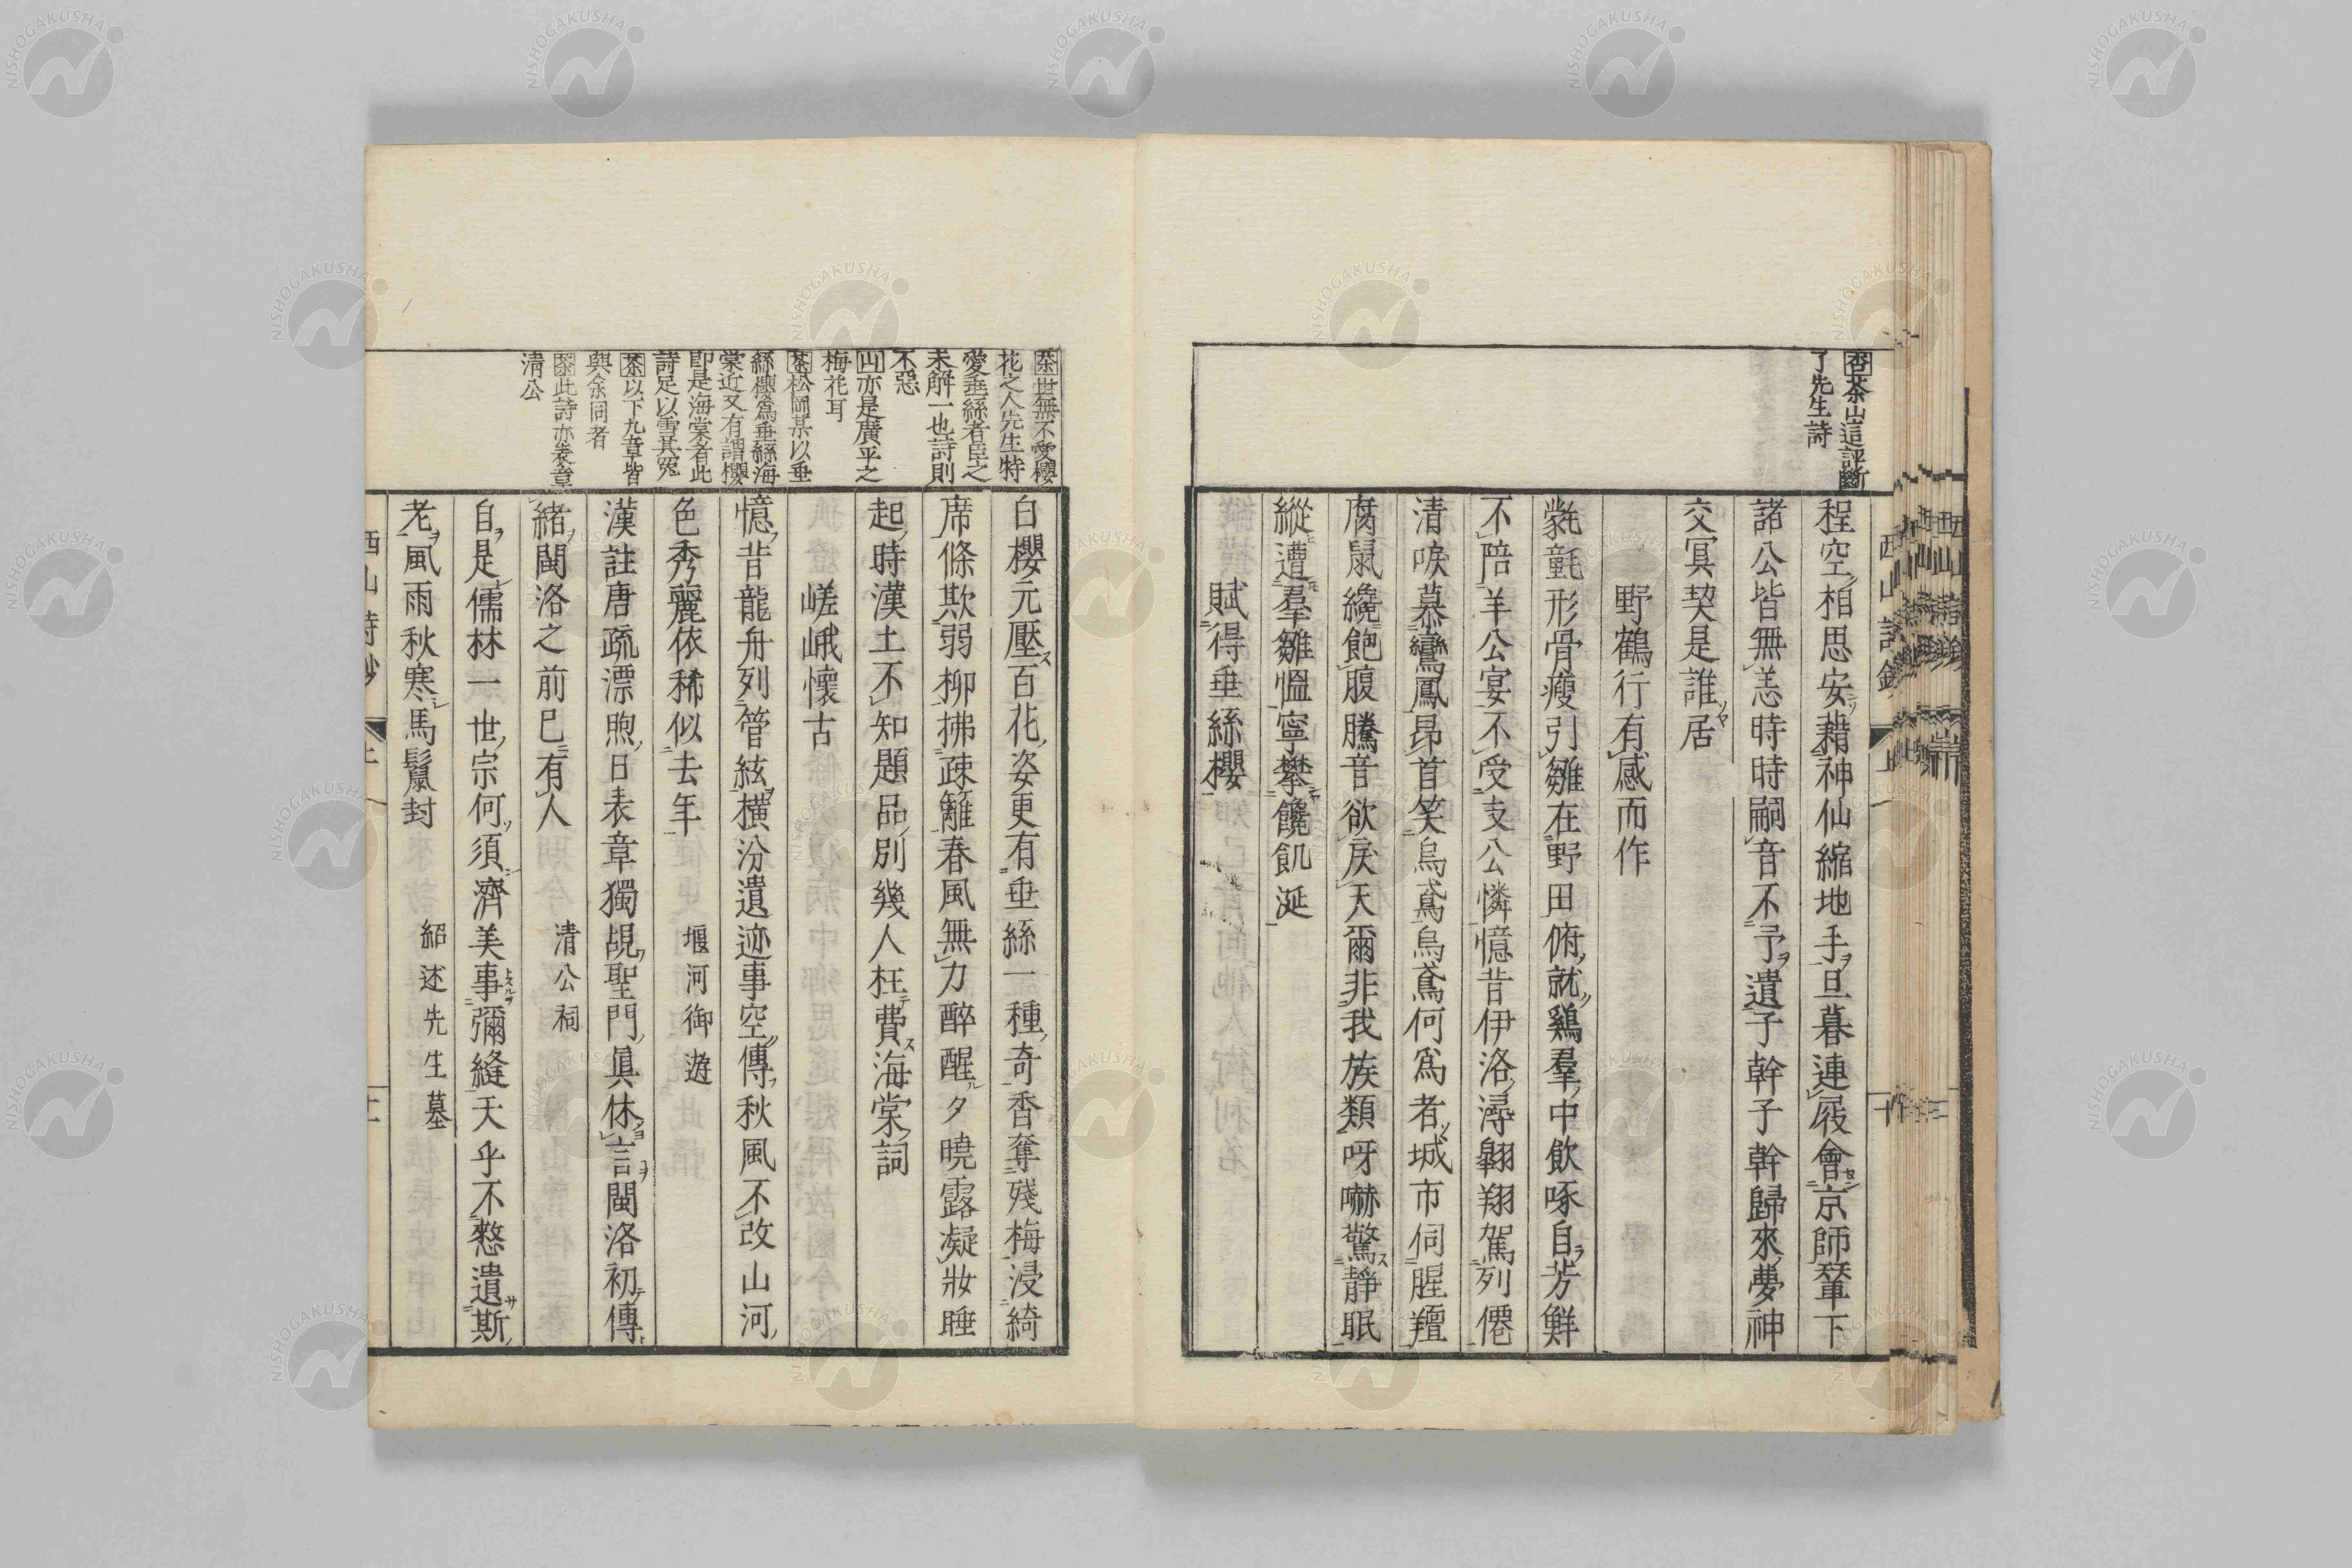 杏茶山這評斷
了先生詩
程空相思安藉神仙縮地手旦暮連屐會京師輦下
諸公皆無恙時時嗣音不予遺子幹子幹歸來夢神
交冥契是誰居
野鶴行有感而作
氋氃形骨瘦引雛在野田俯就鷄羣中飲啄自芳鮮
不陪羊公宴不受支公憐憶昔伊洛潯翺翔駕列僊
清唳慕鸞鳳昂首笑烏鳶烏鳶何爲者城市伺腥羶
腐鼠纔飽腹騰音欲戾天爾非我族類呀嚇驚靜眠
縱遭羣雛慍寧攀饞飢涎
賦得垂絲櫻
西山詩鈔
茶世無不愛櫻
花之人先生特
愛垂絲者臣之
未解一也詩則
不惡
山亦是廣平之
梅花耳
茶松岡某以垂
絲櫻爲垂絲海
棠近又有謂櫻
即是海棠者此
詩足以雪其冤
茶以下九章皆
與余同者
茶此詩亦表章
清公
白櫻元壓百花姿更有垂絲一種奇香奪殘梅浸綺
席條欺弱柳拂疎籬春風無力醉醒夕曉露凝妝睡
起時漢土不知題品別幾人枉費海棠詞
嵯峨懷古
憶昔龍舟列管絃橫汾遺迹事空傳秋風不改山河
色秀麗依稀似去年 堰河御遊
漢註唐疏漂煦日表章獨覘聖門眞休言閩洛初傳
緒閩洛之前已有人 清公祠
自是儒林一世宗何須濟美事彌縫天乎不憖遺斯
老風雨秋寒馬鬣封 紹述先生墓
西山詩鈔